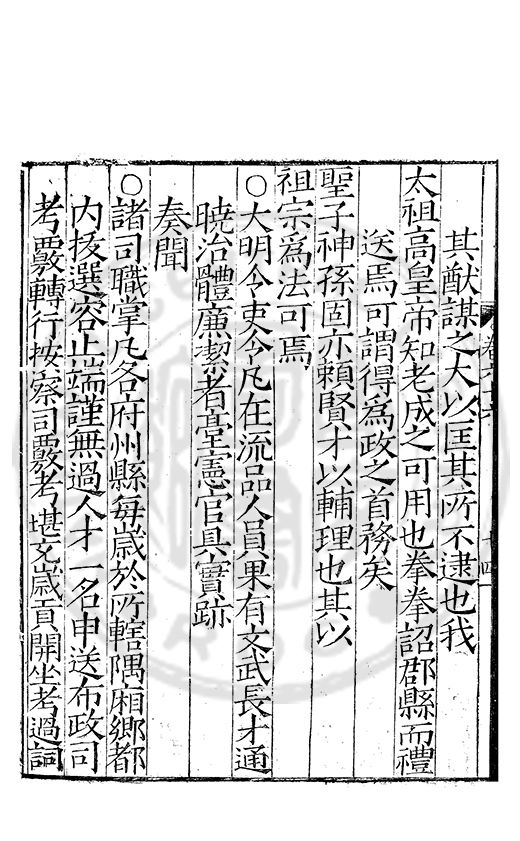 其猷謀之大以匡其所不逮也我
太祖高皇帝知老成之可用也拳拳詔郡縣而禮
送焉可謂得為政之首務矣
聖子神孫固亦賴賢才以輔理也其以
祖宗為法可焉
○大明令吏令凡在流品人員果有文武長才通
曉治體廉潔者臺憲官具實跡
奏聞
○諸司職掌凡各府州縣每歲於所轄隅廂鄉都
內拔選容止端謹無過人才一名申送布政司
考覈轉行按察司覈考堪充歲貢開坐考過詞